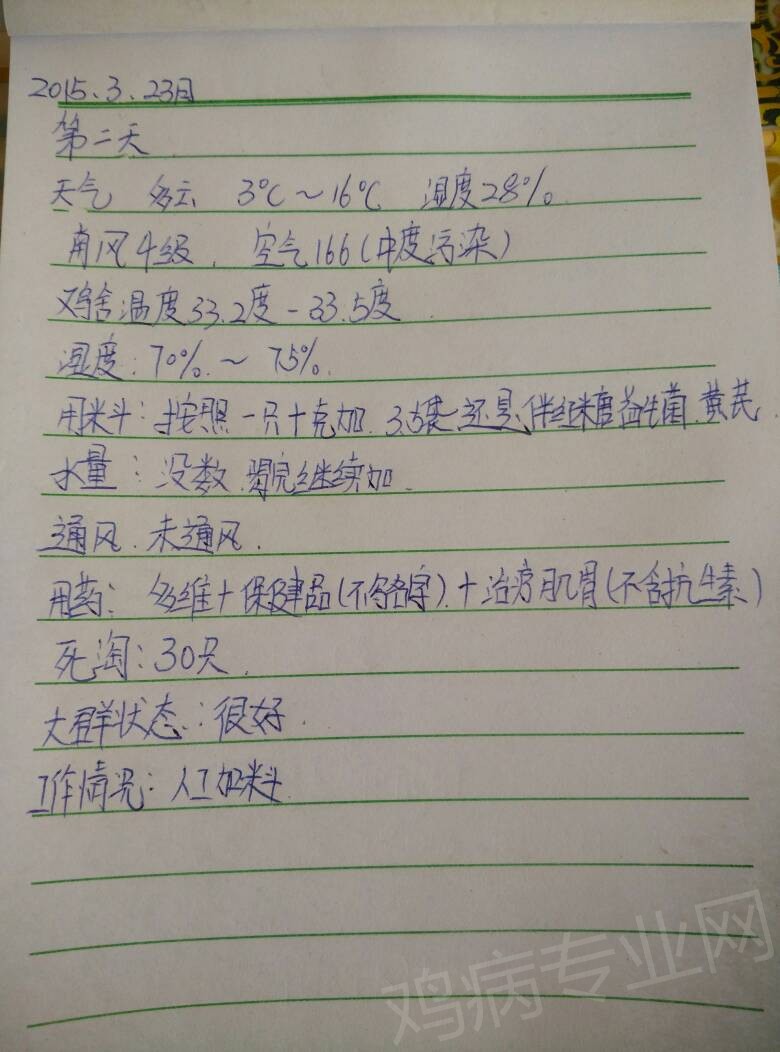 2015.3.23日
第二天
天气 多云 3℃~16℃ 湿度28%
南风4级. 空气166(中度污染)
鸡舍温度33.2度-33.5度.
湿度:70%.~75%.
用料:按照一只十克加.3.5袋 还是伴红糖益生菌.黄芪.
水量:没数.喝完继续加.
通风.未通风.
用药:多维+保健品(不写名字).+治疗肌胃(不含抗生素)
死淘:30只.
大群状态:很好.
工作情况:人工加料.
鸡病专业网